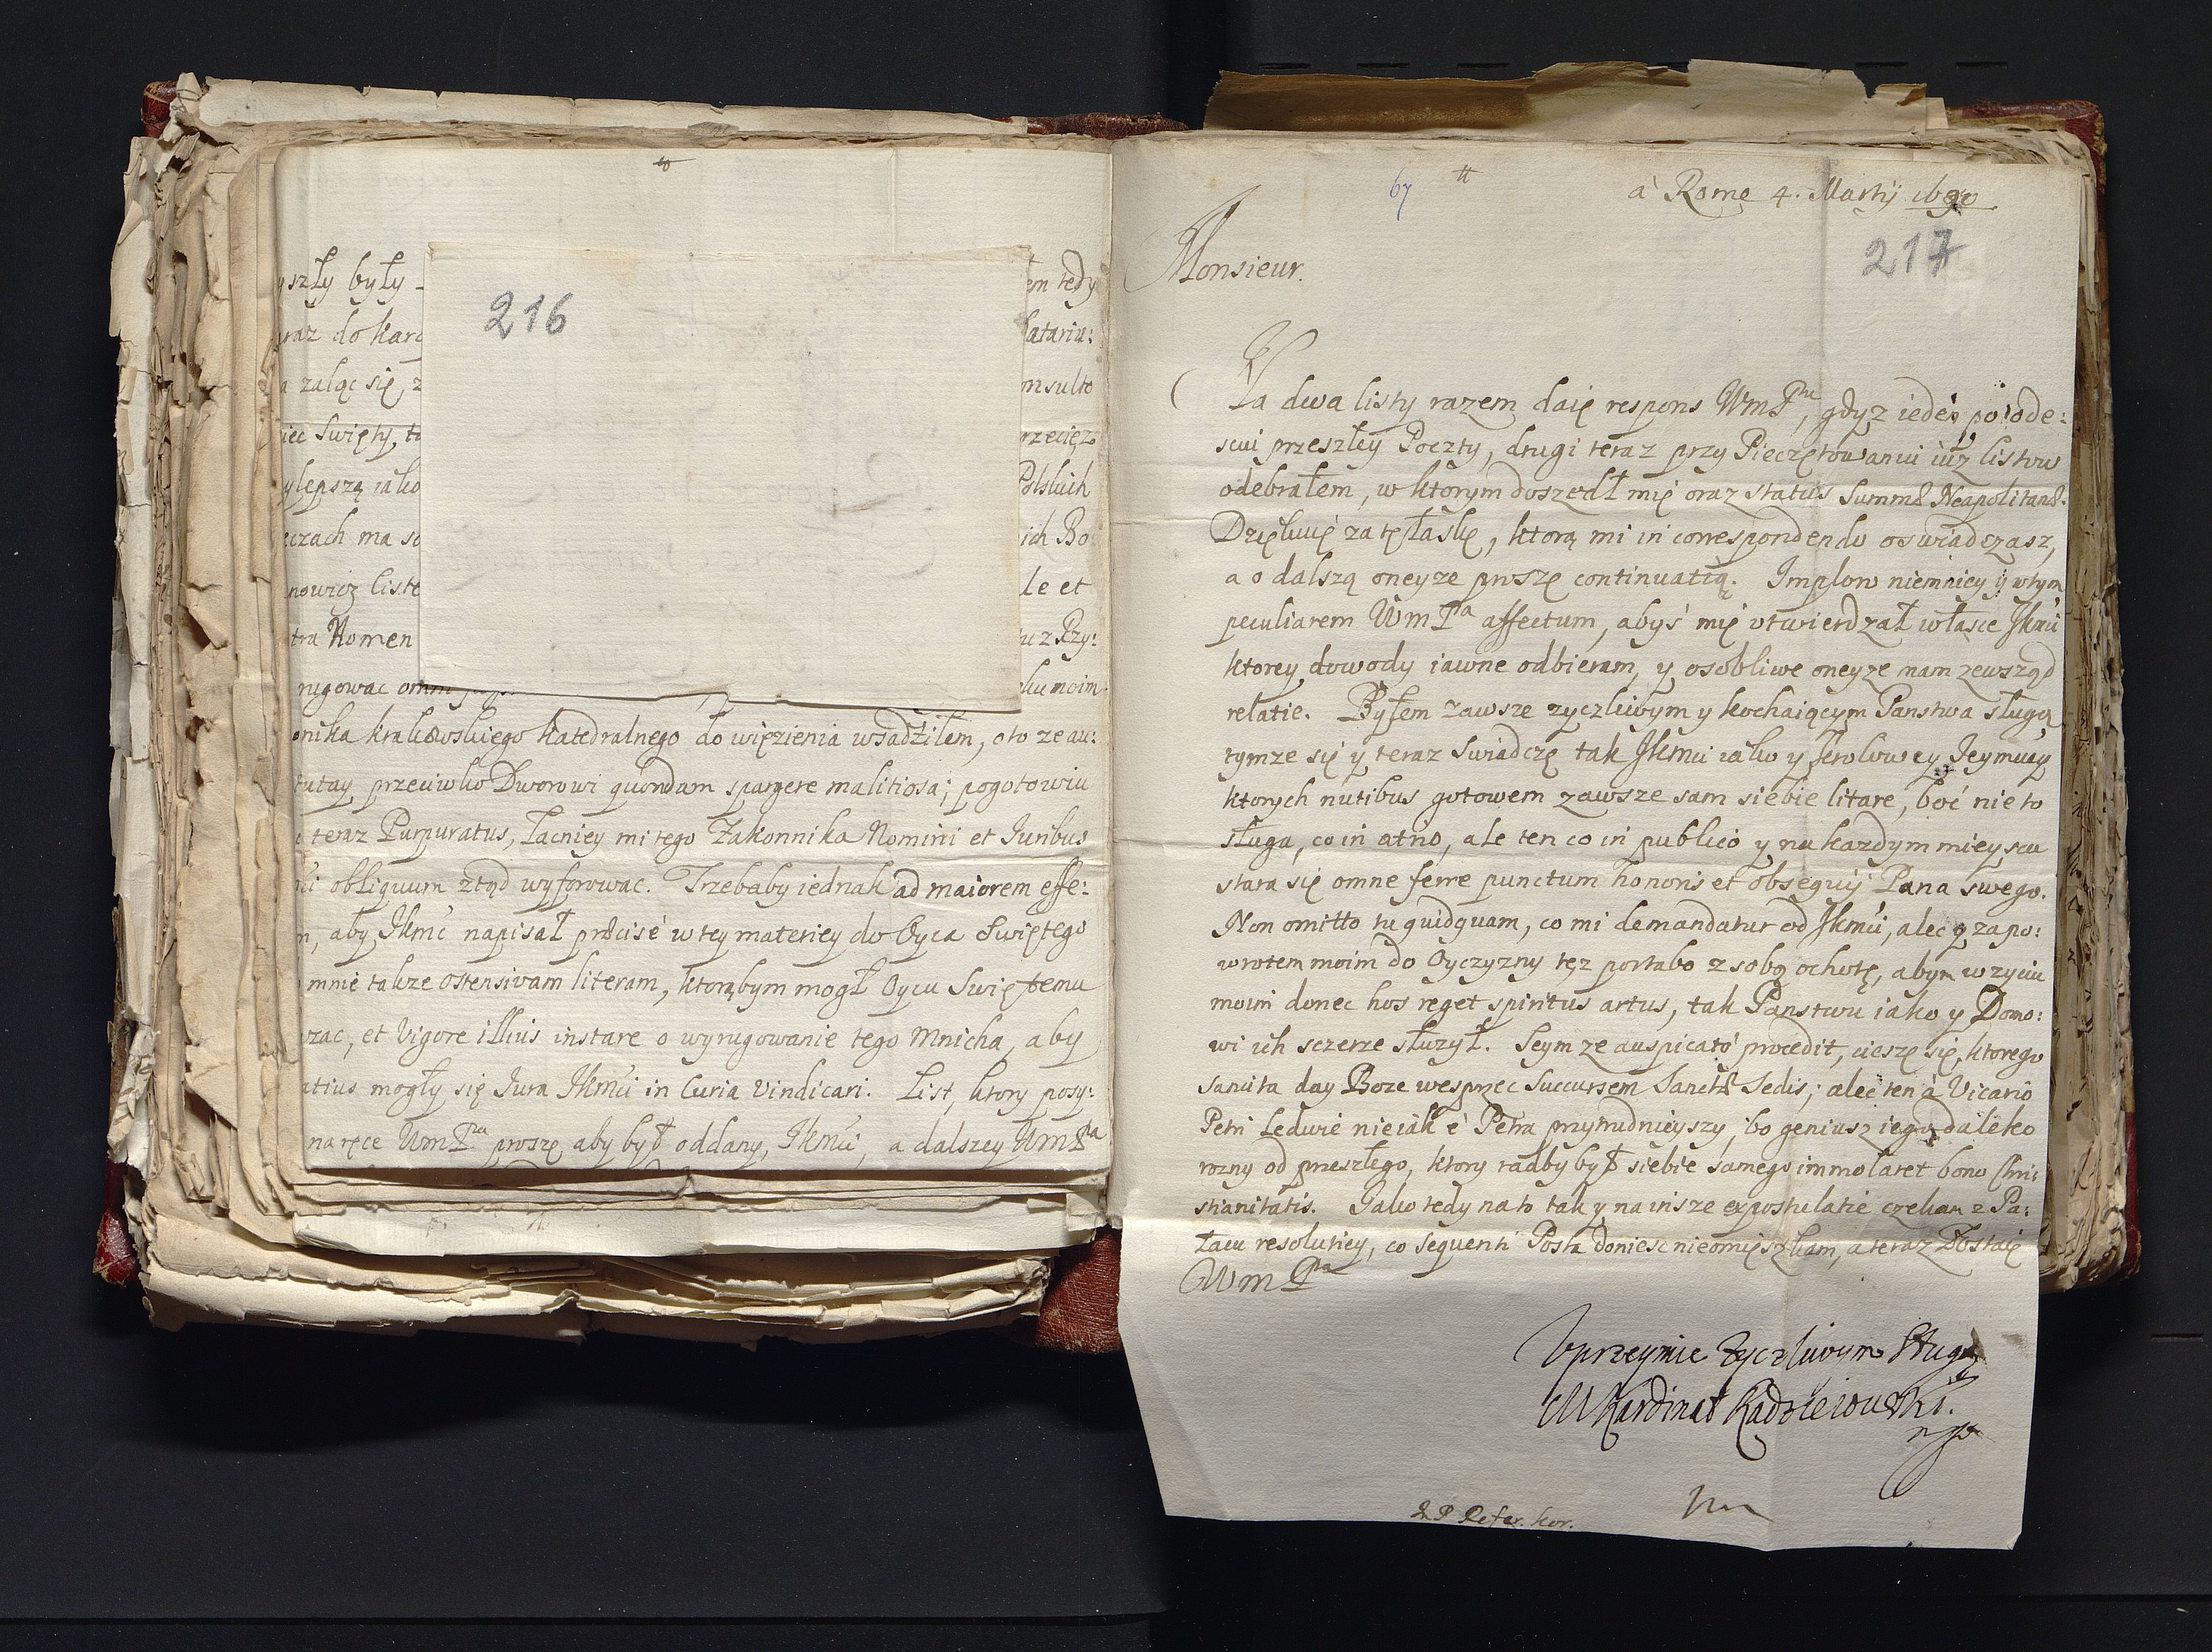 yszły były
em tedy
raz do Kard
latariu:
a zaląc się, z
onsulto
iec Swięty, to
rzecięz
ylepszą iako
Polskich
eczach ma so
ich Bo
nowicz liste
le et
tra Nomen
tu z Rzy:
rugowac omni
ku moim
216
onika krakowskiego Katedralnego do więzienia wsadziłem, oto ze au:
tutay przeciwko Dworowi quondam spargere malitiosa; pogotowiu
teraz Purpuratus, łacniey mi tego Zakonnika Nomini et Iuribus
obliquum ztąd wyforowac. Trzebaby iednak ad maiorem effe:
m, aby JKmć napisał præcisè w tey materiey do Oyca Swiętego
mnie takze ostensivam literam, ktorąbym mogł Oycu Swiętemu
zac, et vigore illius instare o wyrugowanie tego Mnicha, aby
atius mogły się Iura JKmći in Curia vindicari. List, ktory posy:
na ręce WmPna proszę aby był oddany, JKmći, a dalszey WmPna
67
à Rome 4. Martij 1690
217
Monsieur.
Na dwa listy razem daię respons WmPnu, gdyz ieden po ode:
sciu przeszłey Poczty, drugi teraz przy Pieczętowaniu iuz listow
odebrałem, w ktorym doszedł mię oraz status Summæ Neapolitanæ.
Dziękuię za tę łaskę, ktorą mi in correspondendo oswiadczasz,
a o dalszą oneyze proszę continuatią. Imploro niemniey y w tym
peculiarem WmPna affectum, abyś mię utwierdzał w łasce JKmći
ktorey dowody iawne odbieram, y osobliwe oneyze mam zewsząd
relatie. Byłem zawsze zyczliwym y kochaiącym Panstwa sługą
tymze się y teraz swiadczę tak JKmći iako y Krolowey Jeymości
ktorych nutibus gotowem zawsze sam siebie litare, boć nie to
sługa, co in atrio, ale ten co in publico y na kazdym mieyscu
stara się omne ferre punctum honoris et obsequij Pana swego.
Non omitto tu quidquam, co mi demandatur od JKmći, aleć y za po:
wrotem moim do Oyczyzny tęz portabo z sobą ochotę, abym w zyciu
moim donec hos reget spiritus artus, tak Panstwu iako y Domo:
wi ich sczerze słuzył. Seym ze auspicatò procedit, cieszę się, ktorego
sancita day Boze wesprzec Succursem Sanctæ Sedis; aleć ten à Vicario
Petri Ledwie nieiak è Petra przytrudnieyszy, bo geniusz iego daleko
rozny od przeszłego, ktory radby był siebie samego immolaret bono Chri:
stianitatis. Iako tedy na to tak y na insze expostulatie czekam z Pa:
łacu resolutiey, co sequenti Posta donieść nieomięszkam, a teraz Zostaię
WmPna
Uprzeymie zyczliwym Sługą
M Kardinał Radzieiowski.
mp